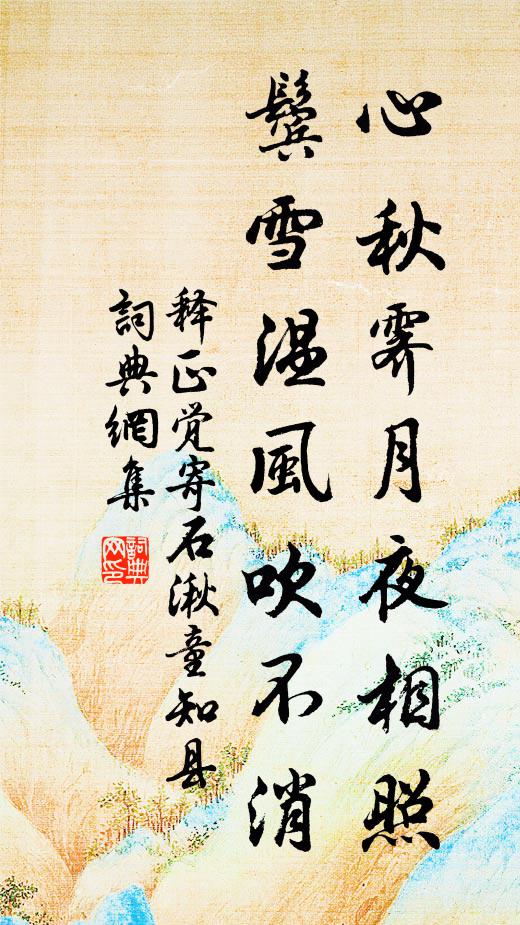 心秋霽月夜相照
鬓雪温風吹不消
释正觉寄石湫童知县
詞典網集
詞典
网印